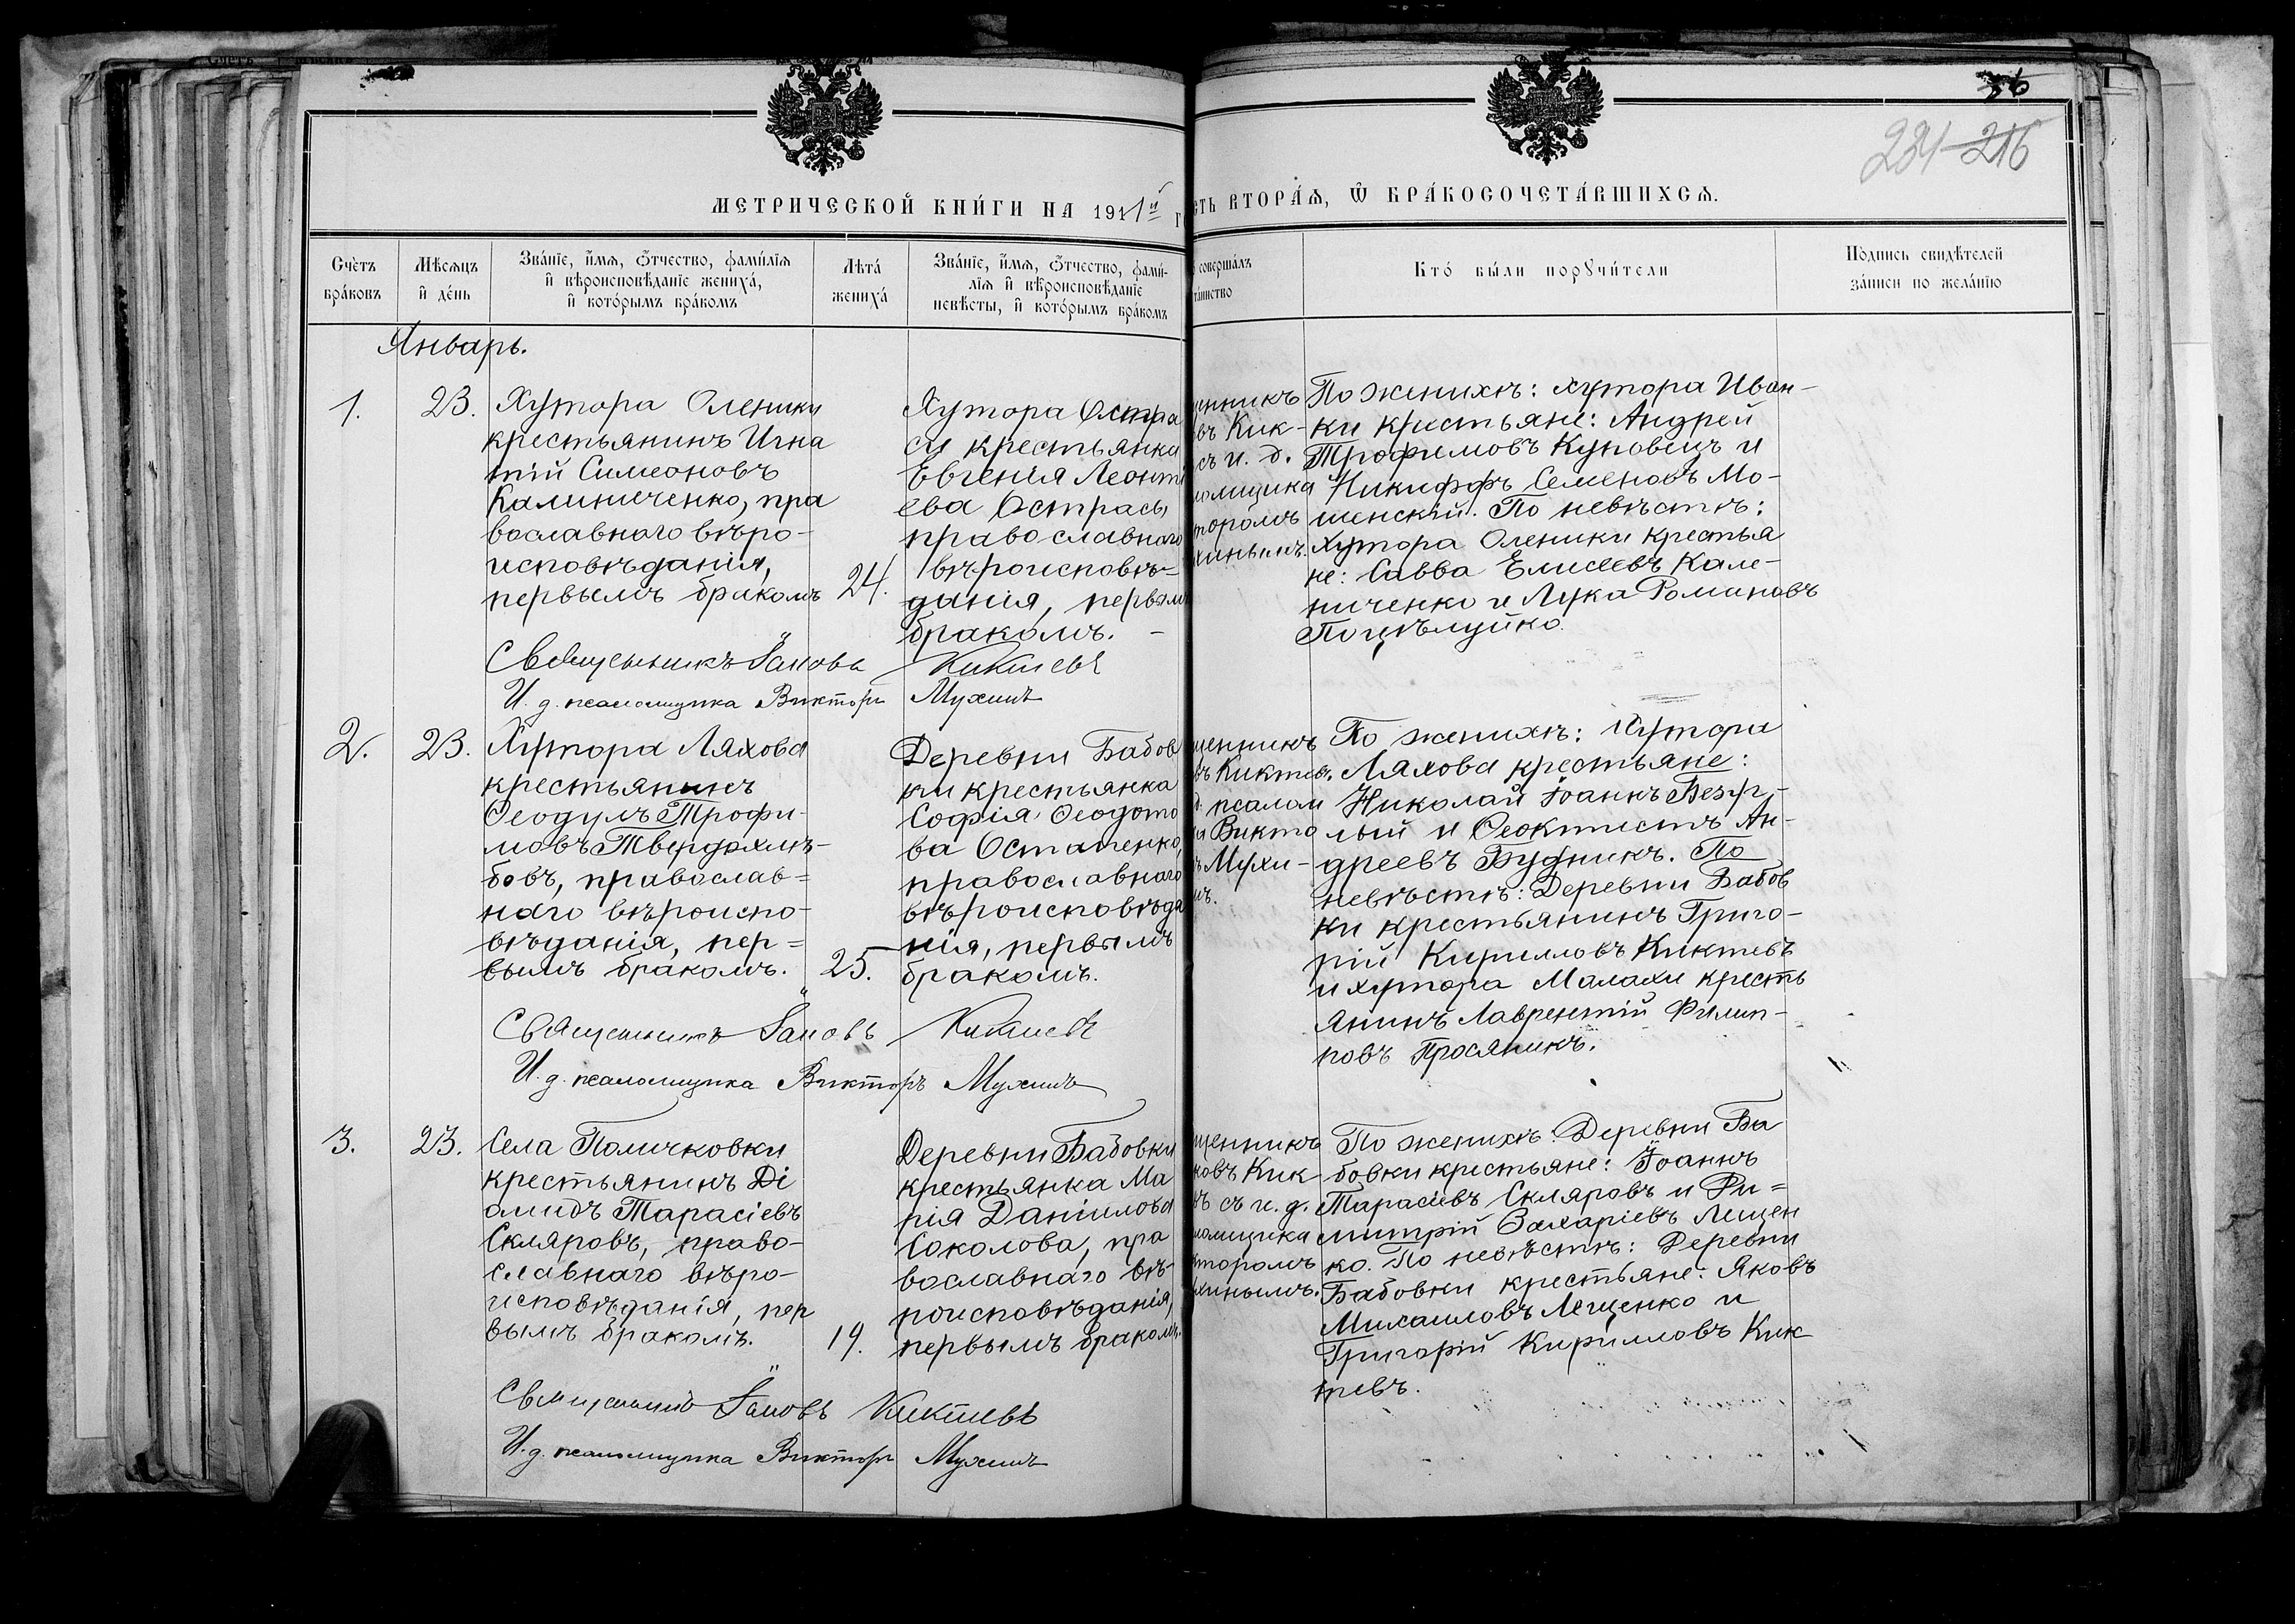 26
234 216
МЕТРИЧЕСКОЙ КНИ́ГИ НА 1911й Г
СТЬ ВТОРА́Я, Ѡ БРАКОСОЧЕТА́ВШИХСЯ.
Счетъ бра́ковъ
Мѣсяцъ и де́нь
Зва́ніе, и́мя, ѻ́тчество, фами́лія и вѣроисповѣ́даніе жениха́, и кото́рымъ бра́комъ
Лѣта́ жениха́
Зва́ніе, и́мя, ѻ́тчество, фами́-
лія и вѣроисповѣ́даніе
невѣ́сты, и кото́рымъ бра́комъ
совершалъ
таинство
Кто́ бы́ли порꙋчи́тели
По́дпись свидѣ́телей
за́писи по жела́нію
Январь.
1.
23.
Хутора Оленики
крестьянинъ Игна
тій Симеоновъ
Калиниченко, пра
вославнаго вѣро-
исповѣданія,
первымъ бракомъ
24.
Хутора Остра
си крестьянка
Евгенія Леонті
ева Острась,
православнаго
вѣроисповѣ-
данія, первым
бракомъ. -
енникъ
въ Кик-
съ и. д.
ломщика
торомъ
хинымъ.
По женихѣ: хутора Иван-
ки крестьяне: Андрей
Трофимовъ Куповецъ и
Никифоръ Семеновъ Мо-
шенскій. По невѣстѣ:
Хутора Оленики крестья
не: Савва Елисеевъ Кали-
ниченко и Лука Романовъ
Поцѣлуйко.
Священникъ Іаковъ Киктевъ
И. д. псаломщика Викторъ Мухинъ
2.
23.
Хутора Ляхова
крестьянинъ
Ѳеодулъ Трофи-
мовъ Твердохлѣ-
бовъ, православ=
наго вѣроиспо-
вѣданія, пер=
вымъ бракомъ.
25.
Деревни Бабов
ки крестьянка
Софія Ѳеодото
ва Остапенко,
православнаго
вѣроисповѣда
нія, первымъ
бракомъ.
щенникъ
въ Киктев.
псалом
Викто
Мухи-
нъ.
По женихѣ: Хутора
Ляхова крестьяне:
Николай Іоаннъ Безу
лый и Ѳеоктистъ Ан-
дреевъ Будникъ. По
невѣстѣ: Деревни Бабов
ки крестьянинъ Григо-
рій Кирилловъ Киктевъ
и хутора Малахи кресть
янинъ Лаврентій Филип-
повъ Просяникъ.
Священникъ Іаковъ Киктевъ
И. д. псаломщика Викторъ Мухинъ
3.
23.
Села Паничковки
крестьянинъ Ді
омидъ Тарасіевъ
Скляровъ, право-
славнаго вѣро-
исповѣданія, пер
вымъ бракомъ.
19.
Деревни Бабовки
крестьянка Ма
рія Даніилова
Соколова, пра
вославнаго вѣ-
роисповѣданія,
первымъ бракомъ.
щенникъ
ковъ Кик-
въ съ и. д.
ломщика
кторомъ
хинымъ.
По женихѣ: Деревни Ба
бовки крестьяне: Іоаннъ
Тарасіевъ Скляровъ и Ди=
митрій Захаріевъ Лещен
ко. По невѣстѣ: Деревни
Бабовки крестьяне: Яковъ
Михаиловъ Лещенко и
Григорій Кирилловъ Кик
тевъ.
Священникъ Іаковъ Киктевъ
И. д. псаломщика Викторъ Мухинъ